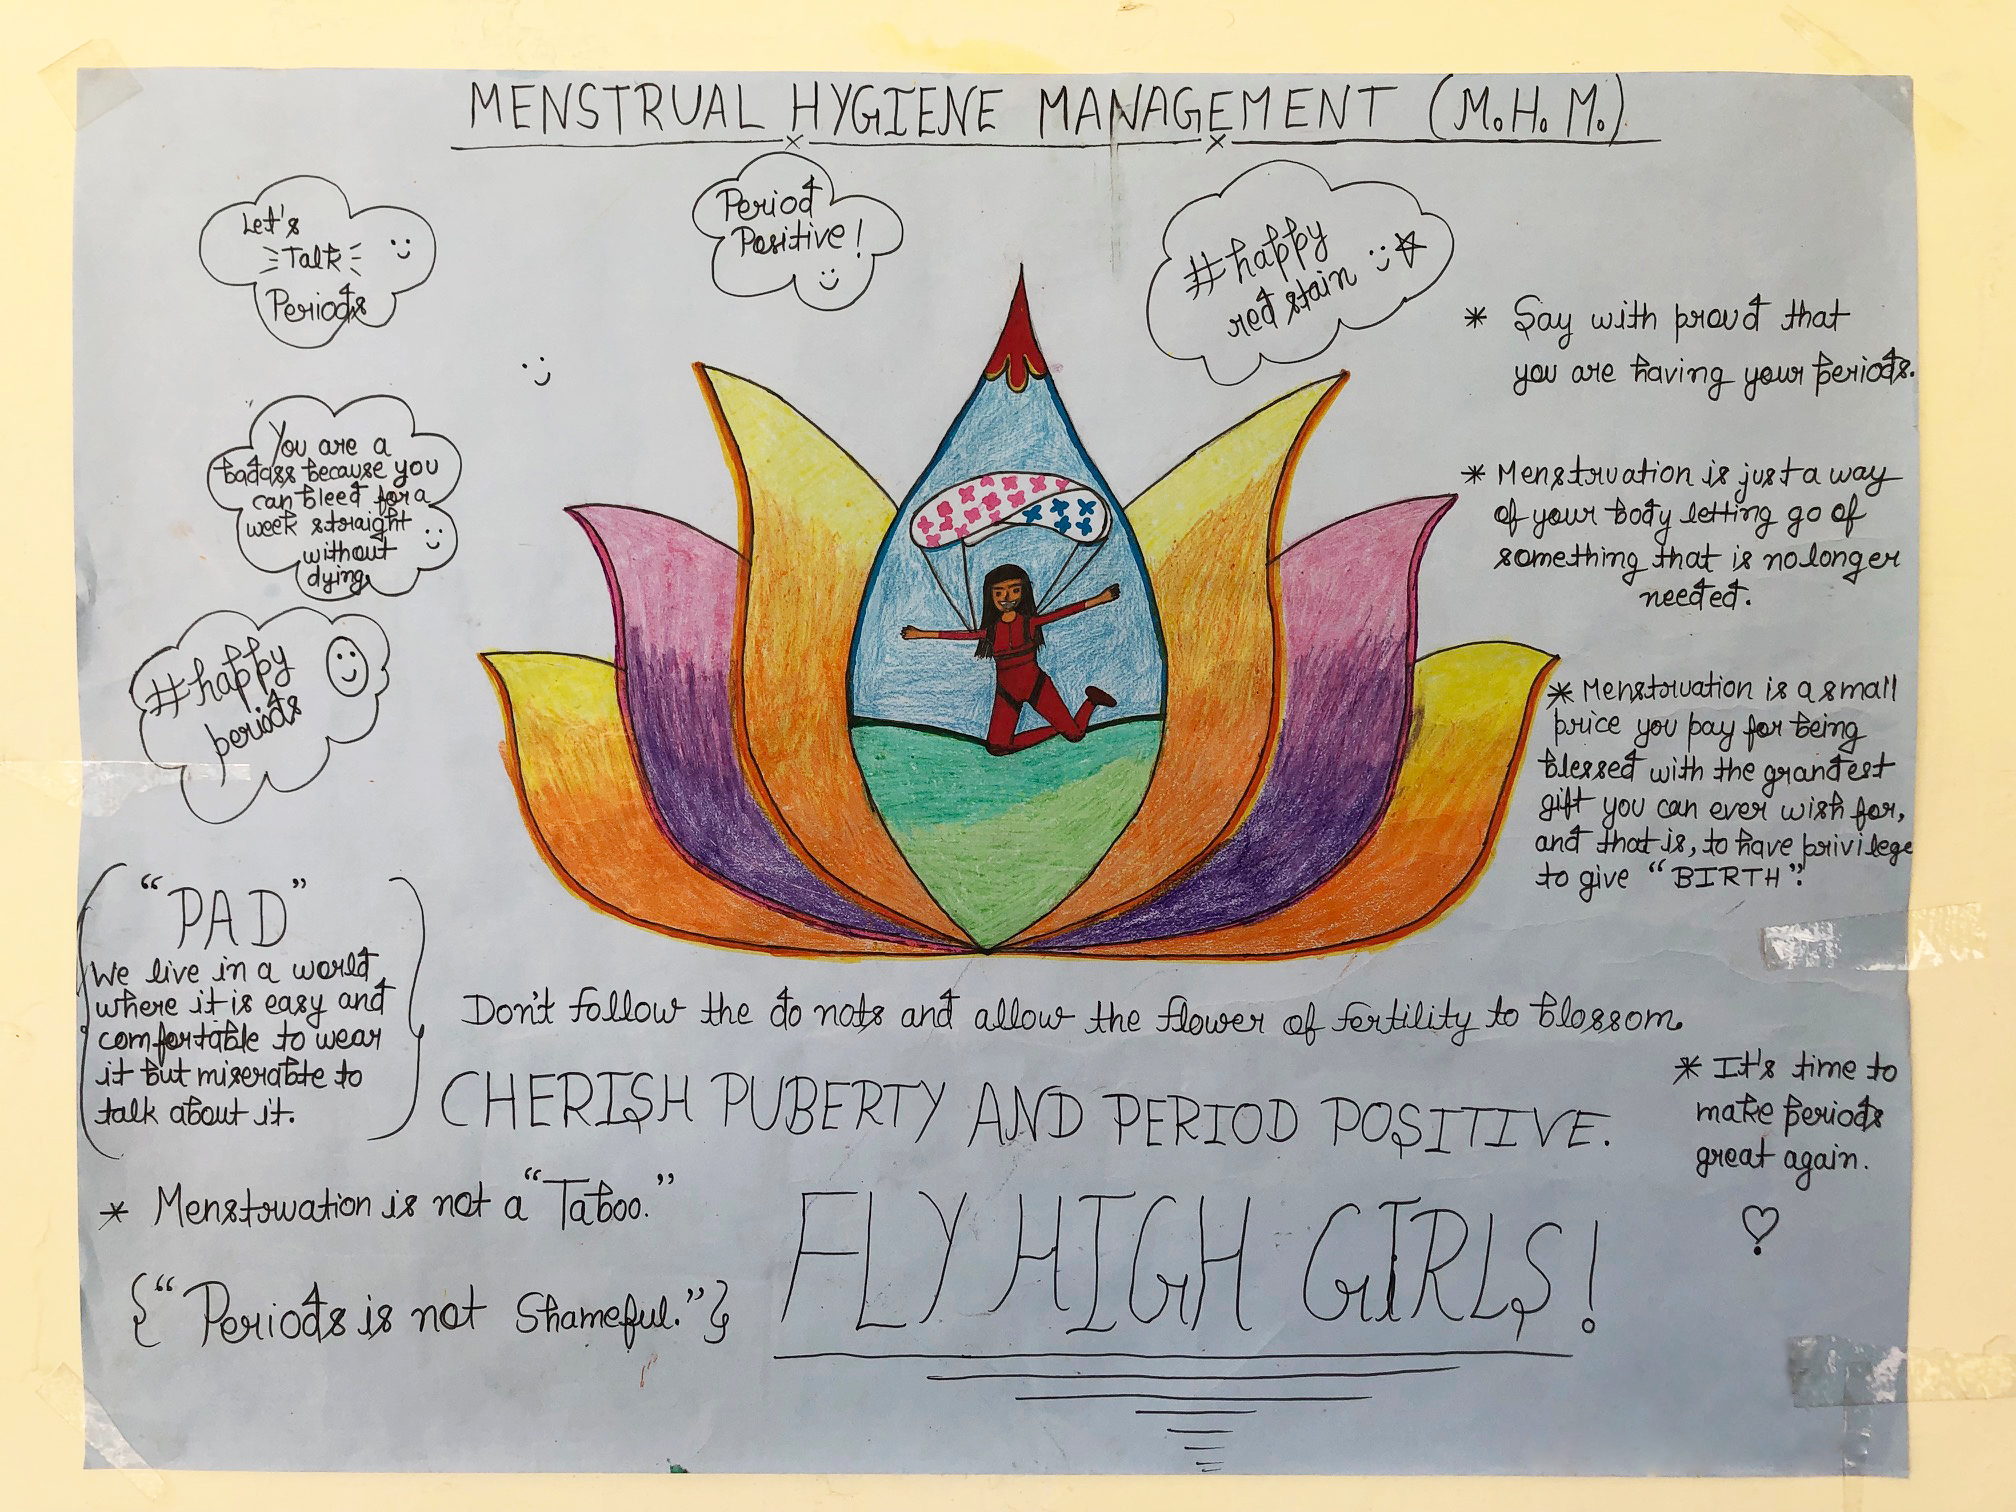 MENSTRUAL HYGIENE MANAGEMENT (M.H.M.)
Let's
Talk
Periods
Period
Positive!
#happy
red stain
You are a
badass because you
can bleed for a
week straight
without
dying
#happy
periods
* Say with proud that
you are having your periods.
* Menstruation is just a way
of your body letting go of
something that is no longer
needed.
* Menstruation is a small
price you pay for being
blessed with the grandest
gift you can ever wish for,
and that is, to have privilege
to give "BIRTH".
"PAD"
We live in a world
where it is easy and
comfortable to wear
it but miserable to
talk about it.
Don't follow the do nots and allow the flower of fertility to blossom.
CHERISH PUBERTY AND PERIOD POSITIVE.
* It's time to
make periods
great again.
* Menstruation is not a "Taboo."
{"Periods is not Shameful."}
FLY HIGH GIRLS!